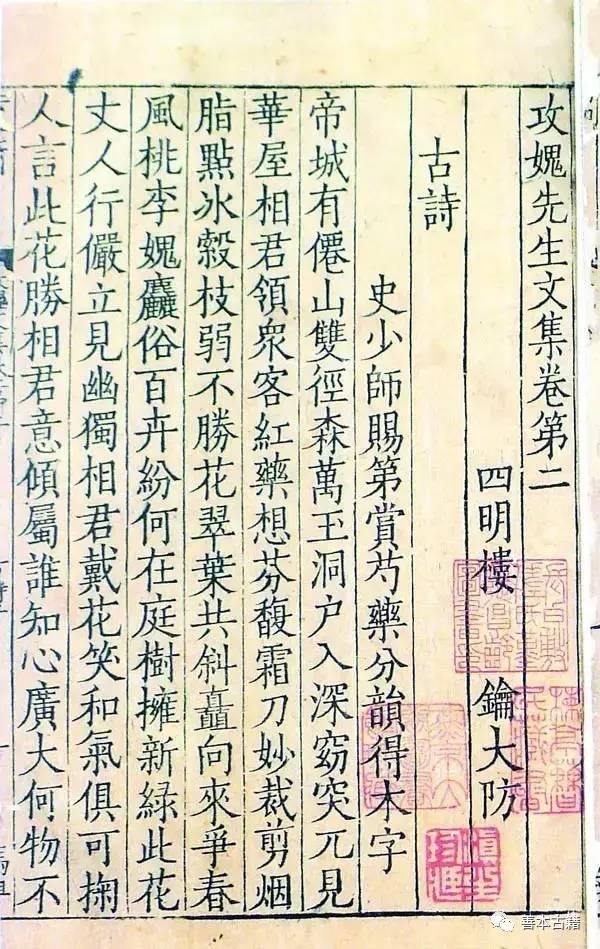 攻媿先生文集卷第二
四明樓 鑰大防
古詩
史少師賜第賞芍藥分韻得木字
帝城有僊山雙徑森萬玉洞户入深窈突兀見
華屋相君領衆客紅藥想芬馥霜刀妙裁剪烟
脂點冰縠枝弱不勝花翠葉共斜矗向來爭春
風桃李媿麤俗百卉紛何在庭樹擁新緑此花
丈人行儼立見幽獨相君戴花笑和氣俱可掬
人言此花勝相君意傾屬誰知心廣大何物不
善本古籍